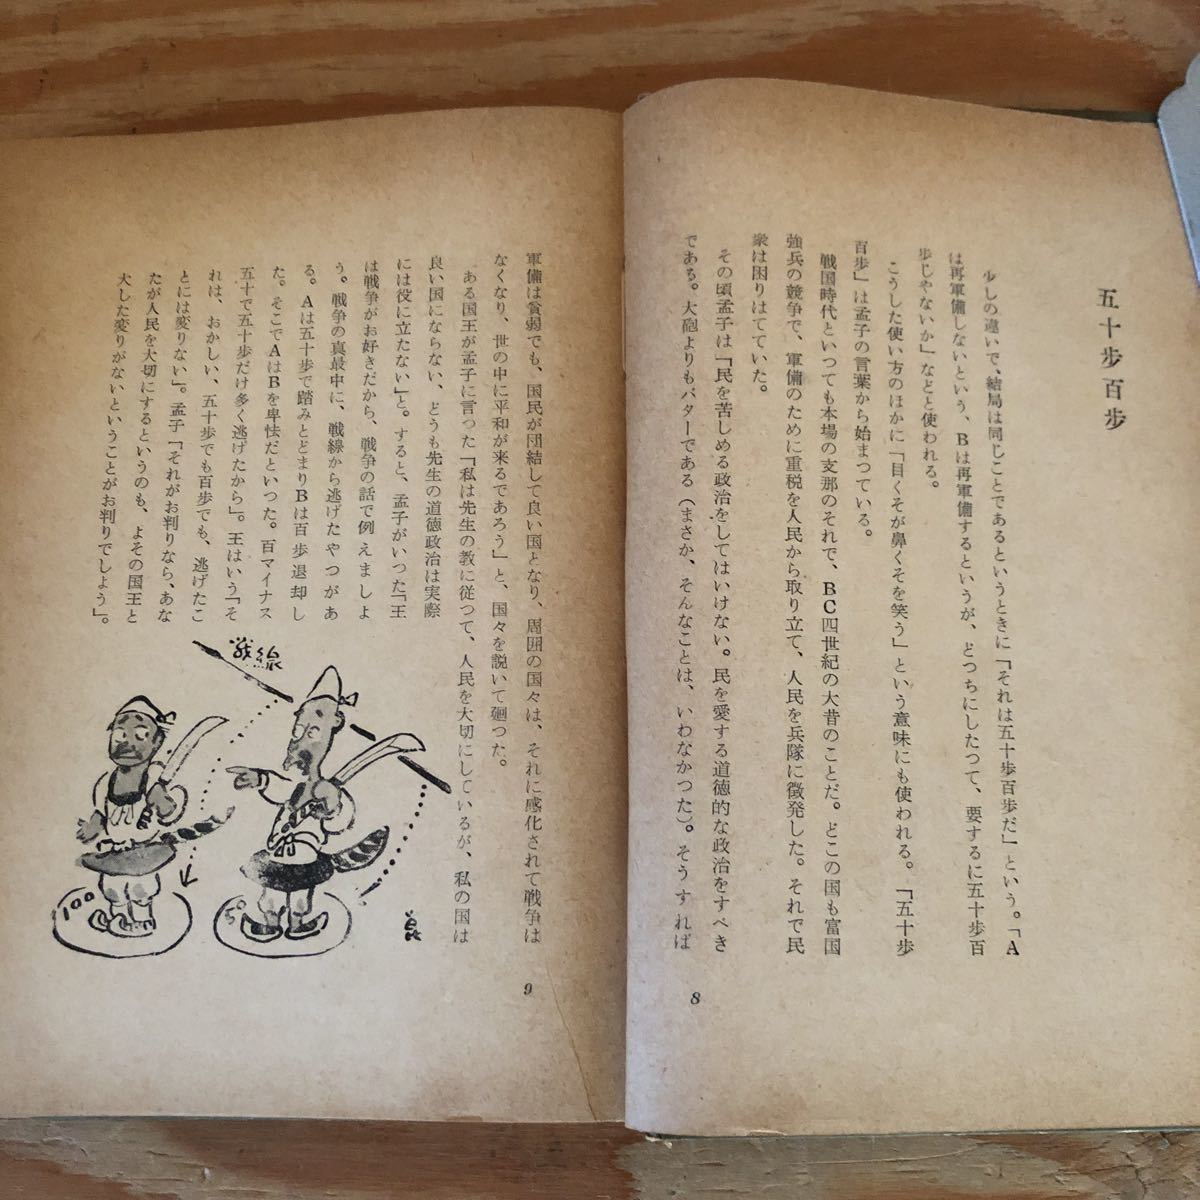 五十歩百歩
少しの違いで、結局は同じことであるというときに「それは五十歩百歩だ」という。「A
は再軍備しないという、Bは再軍備するというが、どつちにしたつて、要するに五十歩百
歩じやないか」などと使われる。
こうした使い方のほかに「目くそが鼻くそを笑う」という意味にも使われる。「五十歩
百歩」は孟子の言葉から始まつている。
戦国時代といつても本場の支那のそれで、BC四世紀の大昔のことだ。どこの国も富国
強兵の競争で、軍備のために重税を人民から取り立て、人民を兵隊に徴発した。それで民
衆は困りはてていた。
その頃孟子は「民を苦しめる政治をしてはいけない。民を愛する道徳的な政治をすべき
である。大砲よりもバターである（まさか、そんなことは、いわなかつた）。そうすれば
8
軍備は貧弱でも、国民が団結して良い国となり、周囲の国々は、それに感化されて戦争は
なくなり、世の中に平和が来るであろう」と、国々を説いて廻つた。
ある国王が孟子に言つた「私は先生の教に従つて、人民を大切にしているが、私の国は
良い国にならない、どうも先生の道徳政治は実際
には役に立たない」と。すると、孟子がいつた「王
は戦争がお好きだから、戦争の話で例えましよ
う。戦争の真最中に、戦線から逃げたやつがあ
る。Aは五十歩で踏みとどまりBは百歩退却し
た。そこでAはBを卑怯だといつた。百マイナス
五十で五十歩だけ多く逃げたから」。王はいう「そ
れは、おかしい、五十歩でも百歩でも、逃げたこ
とには変りない」。孟子「それがお判りなら、あな
たが人民を大切にするというのも、よその国王と
大した変りがないということがお判りでしよう」。
戦線
100
50
9